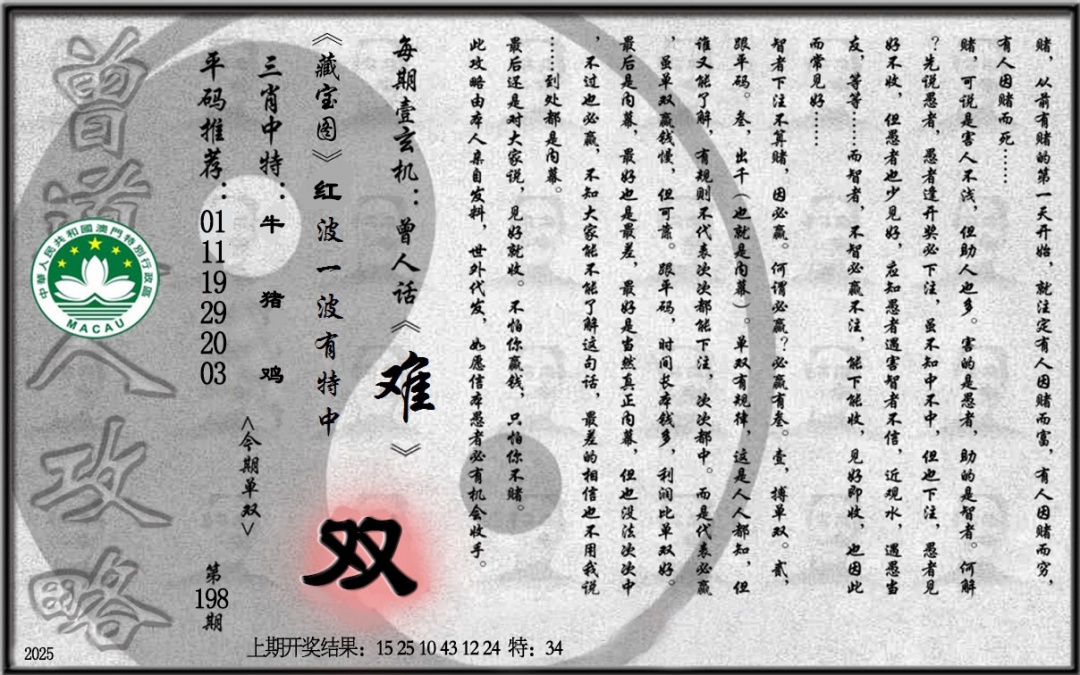 赌，从前有赌的第一天开始，就注定有人因赌而富，有人因赌而穷，
有人因赌而死……
赌，可说是害人不浅，但助人也多。害的是愚者，助的是智者。何解
？先说愚者，愚者逢开奖必下注，虽不知中不中，但也下注，愚者见
好不收，但愚者也少见好，应知愚者遇害智者不信，近观水，遇愚当
友，等等……而智者，不智必赢不注，能下能收，见好即收，也因此
而常见好……
智者下注不算赌，因必赢。何谓必赢？必赢有叁。壹，搏单双。贰，
跟平码。叁，出千（也就是内幕）。单双有规律，这是人人都知，但
谁又能了解，有规则不代表次次都能下注，次次都中。而是代表必赢
，虽单双赢钱慢，但可靠。跟平码，时间长本钱多，利润比单双好。
最后是内幕，最好也是最差，最好是当然真正内幕，但也没法次次中
，不过也必赢，不知大家能不能了解这句话，最差的相信也不用我说
……到处都是内幕。
最后还是对大家说，见好就收。不怕你赢钱，只怕你不赌。
此攻略由本人亲自发料，世外代发，如愿信本愚者必有机会收手。
每期壹玄机：曾人话《难》
《藏宝图》红波一波有特中
双
三肖中特：牛 猪 鸡
<今期单双>
平码推荐：01 11 19 29 20 03
第198期
曾道人攻略
中華人民共和國澳門特別行政區
MACAU
2025
上期开奖结果：15 25 10 43 12 24 特：34